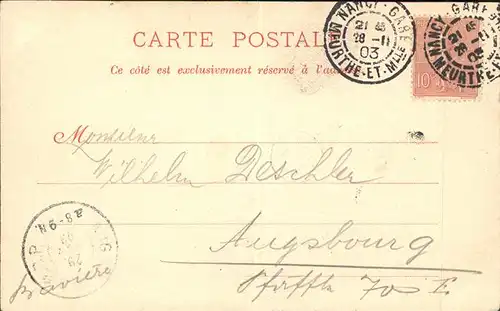 CARTE POSTAL
Ce côté est exclusivement réservé à l'ad
NANCY-GARE
21
28 -11
03
MEURTHE-ET-Mlle
NANCY-GARE
MEURTHE
10
Monsieur
Wilhelm Deschler
Augsbourg
Pfaffle 70 I.
Bavière